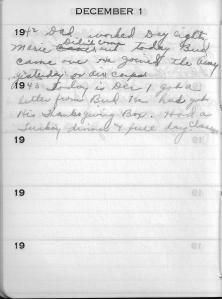 DECEMBER 1
1942 Dad worked Day eight
Marie Didn't come today Bud
came over he joined the Army
yesterday or
1943 Today is Dec 1 got a
letter from Bud he had got
His Thanksgiving Box. Had a
Turkey dinner & full day
19
19
19